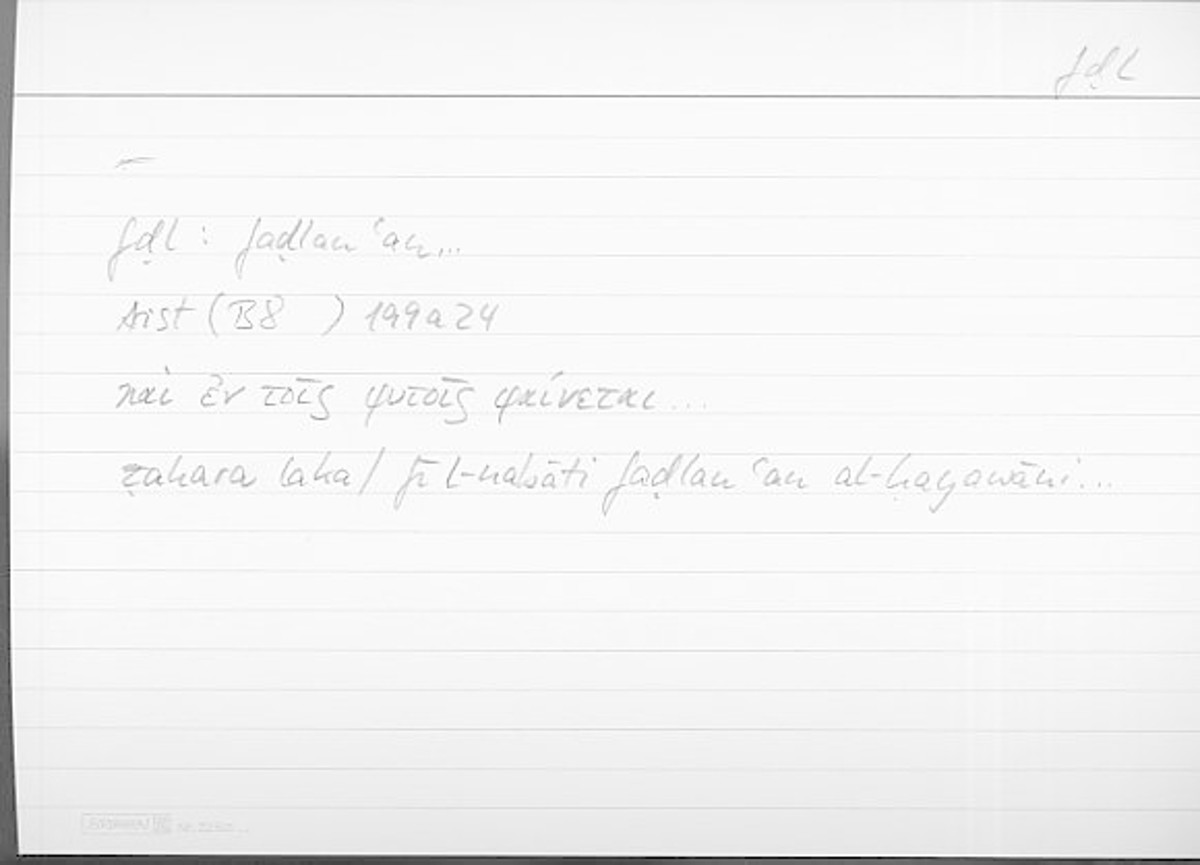 fḍl
fḍl : faḍlan ʿan...
Arist (B8 ) 199a24
καὶ ἐν τοῖς φυτοῖς φαίνεται...
ẓahara laka/ fī l-nabāti faḍlan ʿan al-ḥayawāni...